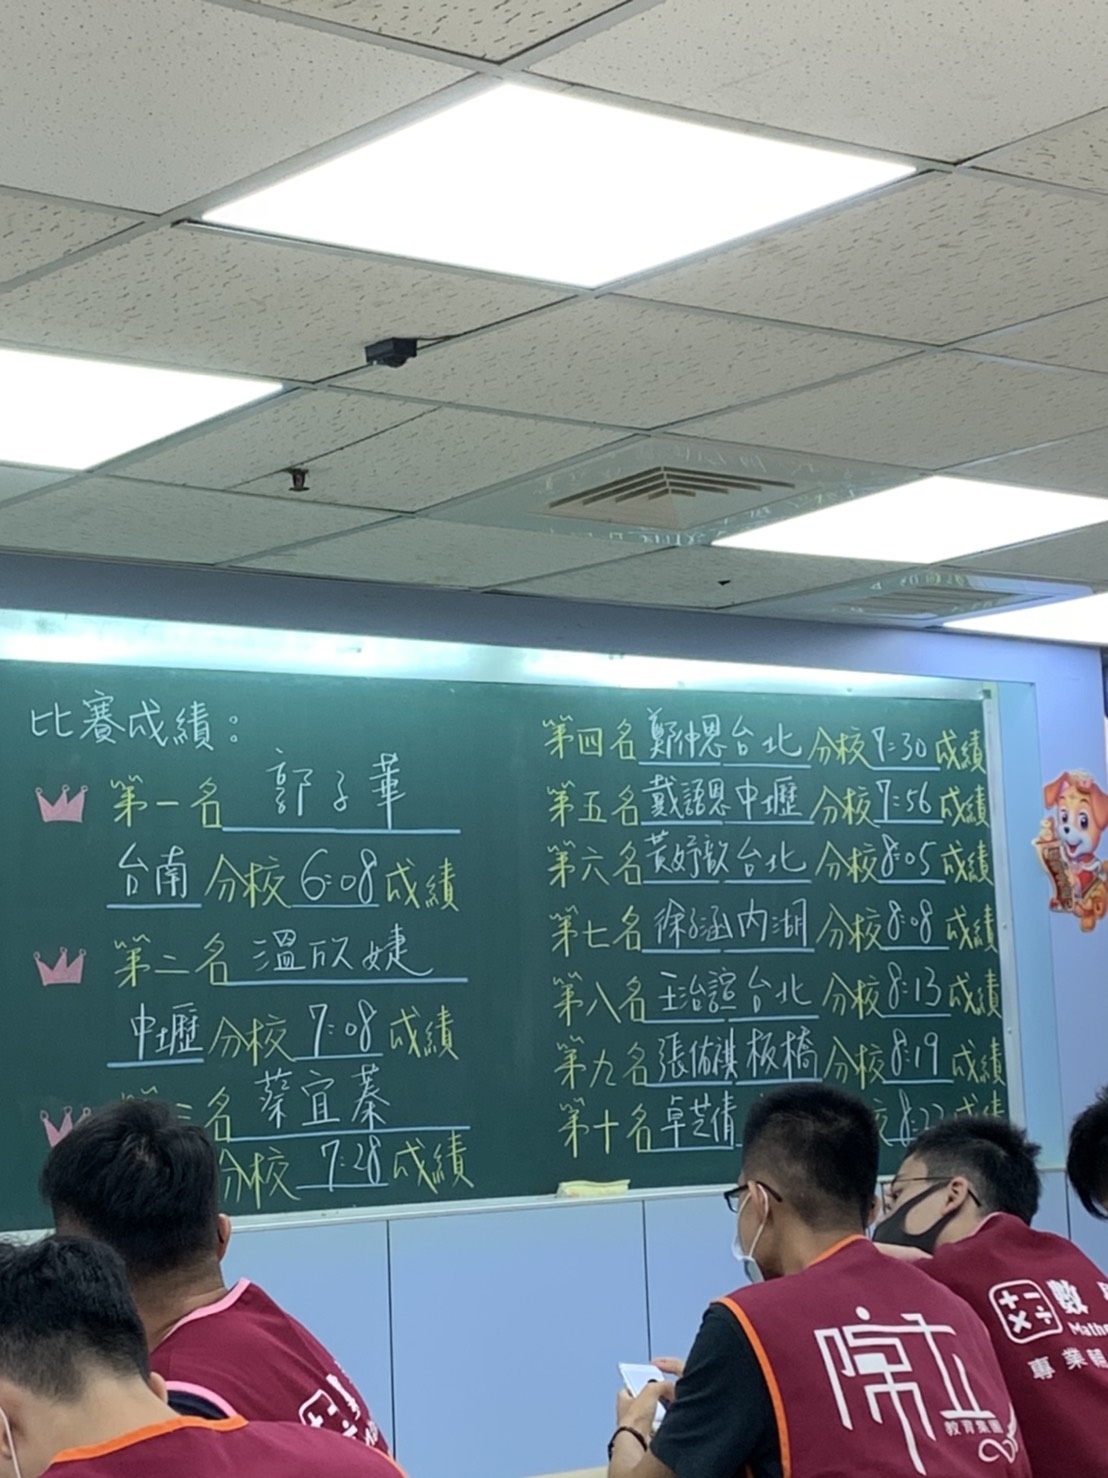 比賽成績：
第一名 郭子華
台南分校6:08成績
第二名 溫欣婕
中壢分校7:08成績
三名 蔡宜蓁
分校7:28成績
第四名鄭仲恩台北分校7:30成績
第五名戴語恩中壢分校7:56成績
第六名黃妤歆台北分校8:05成績
第七名徐子涵內湖分校8:08成績
第八名王治諠台北分校8:13成績
第九名張佑祺板橋分校8:19成績
第十名卓芝倩 校8:2 成績
常立
教育集團
數
Math
專業